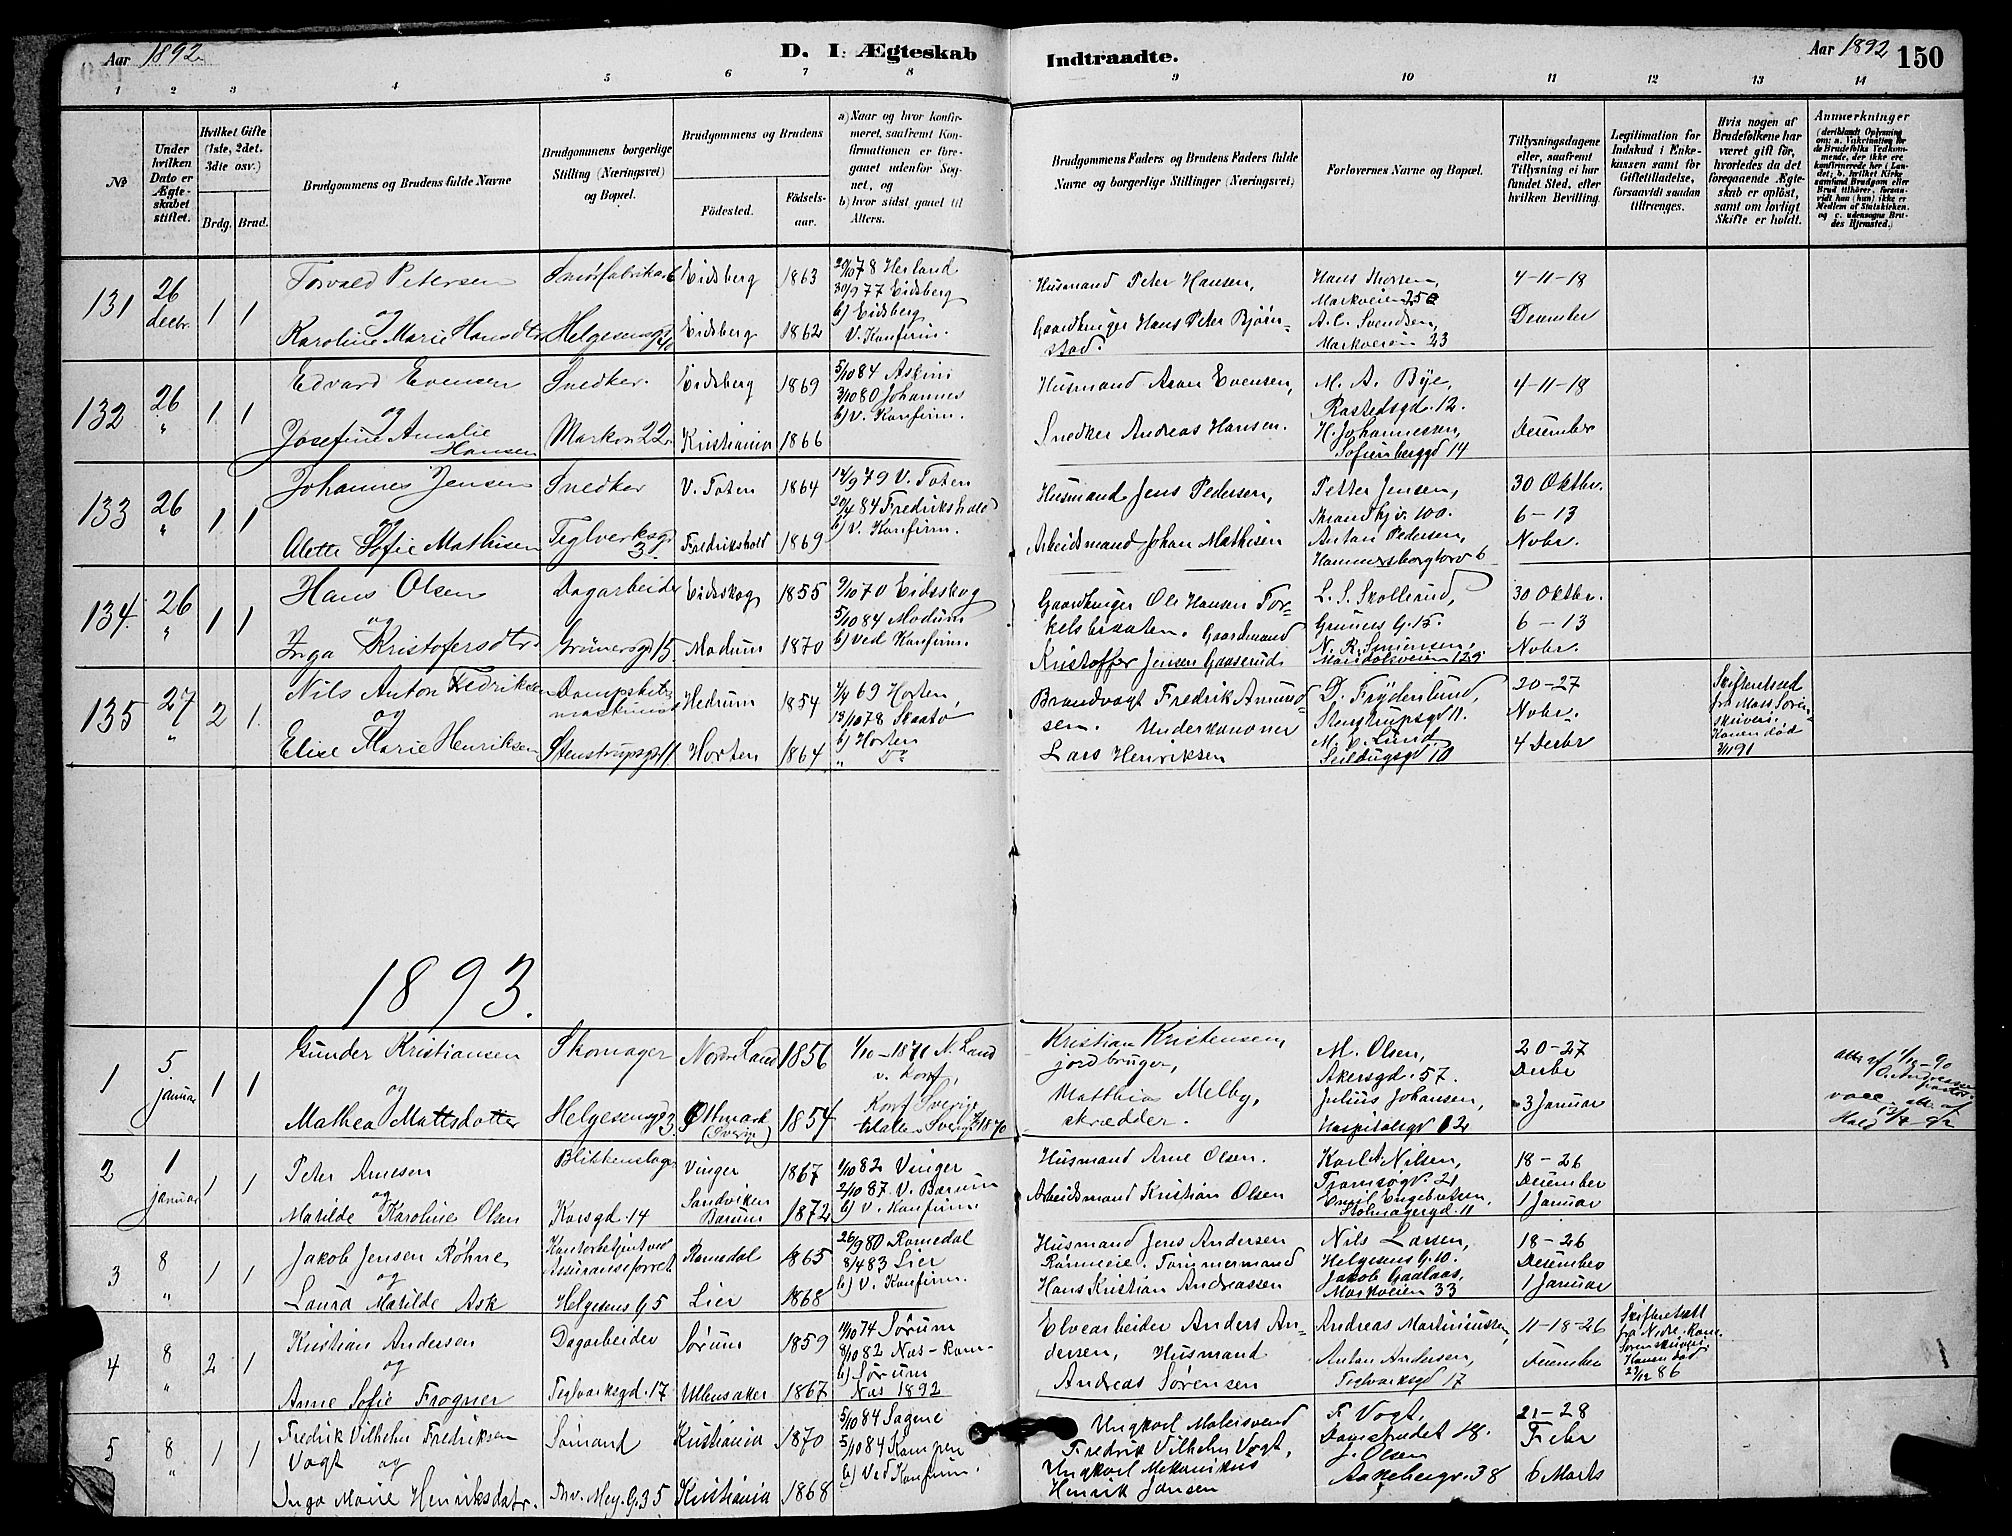 Aar 1892.
D. I. Ægteskab
Indtraadte.
Aar 1892
150
1 2 3 4 5 6 7 8
9 10 11 12 13 14
No
Under hvilken Dato er Ægteskabet stiftet.
Hvilket Gifte (1ste, 2det. 3die osv.)
Brdg. Brud.
Brudgommens og Brudens fulde Navne
Brudgommens borgerlige Stilling (Næringsvei) og Bopæl.
Brudgommens og Brudens
Födested.
Födselsaar.
a) Naar og hvor konfirmeret, saafremt Konfirmationen er foregaaet udenfor Sognet, og
b) hvor sidst gaaet til Alters.
Brudgommens Faders og Brudens Faders fulde Navne og borgerlige Stillinger (Næringsvei)
Forlovernes Navne og Bopæl.
Tillysningsdagene eller, saafremt Tillysning ei har fundet Sted, efter hvilken Bevilling.
Legitimation for Indskud i Enkekassen samt for Giftetilladelse, forsaavidt saadan tiltrænges.
Hvis nogen af Brudefolkene har været gift för, hvorledes da det foregaaende Ægteskab er oplöst, samt om lovligt Skifte er holdt.
Anmærkninger
(deriblandt Oplysning om: a. Vakcination for de Brudefolks Vedkommende, der ikke ere konfirmerede her i Landet; b. hvilket Kirkesamfund Brudgom eller Brud tilhörer, forsaavidt han (hun) ikke er Medlem af Statskirken. og c. udensogns Brudes Hjemsted.)
131 26 Decbr. 1 1
Torvald Petersen
og
Karoline Marie Hansdtr
Helgesensgd 40
Eidsberg 1863
Eidsberg 1862
20/10 78 Herland
30/9 77 Eidsberg
b) Eidsberg
V. Konfirm.
Husmand Peter Hansen,
Gaardbruger Hans Peter Bjørnstad.
Hans Thorsen,
Markveien 25
A. C. Svendsen,
Markveien 23
4-11-18
December
132 26 " 1 1
Edvard Evensen
og
Josefine Amalie Hansen
Snedker.
Markvn 22
Eidsberg 1869
Kristiania 1866
5/10 84 Askim
3/10 80 Johannes
b) V. Konfirm.
Husmand Evensen,
Snedker Andreas Hansen.
M. A. Bye,
Rostedsgd. 12.
H. Johannessen,
Sofienberggd 14
4-11-18
December
133 26 " 1 1
Johannes Jensen
og
Alette Sofie Mathisen
Snedker
Teglverksgd 3.
V. Toten 1864
Fredrikshald 1869
14/9 79 V. Toten
20/4 84 Fredrikshald
b) V. Konfirm.
Husmand Jens Pedersen,
Arbeidsmand Johan Mathisen
Petter Jensen,
Trondhjv. 100.
Anton Pedersen,
Hammersborgtorv 6
30 Oktbr.
6-13
Novbr.
134. 26 " 1 1
Hans Olsen
og
Inga Kristofersdtr.
Dagarbeider
Grünersgd 15.
Eidsskog 1855
Modum 1870
2/10 70 Eidsskog
5/10 84 Modum
b) Ved Konfirm.
Gaardbruger Ole Hansen Torkelsbraaten. Gaardmand
Kristoffer Jensen Gaaserud
L. S. Skollerud,
Gruners G. 15.
N. R. Simensen,
Maridalsveien 129
30 Oktbr.
6-13
Novbr.
135 27 " 2 1.
Nils Anton Fredriksen
og
Elise Marie Henriksen
Dampskibsmaskinist
Stenstrupsgd 11
Hedrum 1854
Horten 1864
69 Horten
13/10 78 Skaatø
b) Horten
" do
Brandvogt Fredrik Amundsen. Underkanoner
Lars Henriksen
D. Frydenlund,
Stenstrupsgd 11.
M. Lund
Seildugsgd 10
20-27
Novbr.
4 Decbr
Skifteattest
fra Moss Sorenskriveri.
Konen død
91
1893.
1 5 januar 1 1
Gunder Kristiansen
og
Mathea Mattsdotter
Skomager
Helgesensgd 3.
Nordre Land 1856
Östmark (Sverige) 1854
1/10-1871 N. Land
v. Konf.
Konf. Sverige
Kristian Kristensen,
jordbruger,
Matthias Melby,
skrædder.
M. Olsen,
Akersgd. 57.
Julius Johansen,
Hospitalsgd 12
20-27
Decbr
3 Januar
2 1 januar 1 1
Peter Arnesen
og
Matilde Karoline Olsen
Blikkenslager
Korsgd. 14
Vinger 1867
Sandviken Bærum 1872
1/10 82 Vinger
2/10 87 V. Bærum
b) V. Konfirm
Husmand Arne Olsen.
Arbeidsmand Kristian Olsen
Karl A. Nilsen,
Tromsøgd. 21
Emil Engebretsen,
Stolmagergd. 11
18-26
December
1 Januar
3 8 " 1 1
Jakob Jensen Röhne
og
Laura Matilde Ask
Kontorbetjent ved Assuranceforret
Helgesens G. 5
Romedal 1865
Lier 1868
26/9 80 Romedal
8/4 83 Lier
b) V. Konfirm.
Husmand Jens Andersen
Rønneie. Tømmermand
Hans Kristian Andreassen
Nils Larsen,
Helgesens G. 10.
Jakob Gaalaas,
Markveien 33
18-26
December
1 Januar
4 8 " 2 1
Kristian Andersen
og
Anne Sofie Frogner
Dagarbeider
Teglværksgd. 17
Sørum 1859
Ullensaker 1867
11/10 74 Sørum
8/10 82 Næs - Rom-
b) Sørum
Næs 1892
Elvearbeider Anders Andersen, Husmand
Andreas Sørensen
Andreas Martiniussen,
Anton Andersen,
Teglværksgd 17
11-18-26
December
Skifteattest
fra Nedre Rome.
Sorenskriveri.
Konen død
23/12 86
5 8 " 1 1
Fredrik Vilhelm Fredriksen
Vogt og
Inga Marie Henriksdatr.
Sømand
Thv. Mey. G. 35
Kristiania 1870
Kristiania 1868
5/10 84 Sagene
5/10 84 Kampen
b) Ved Konfirm.
Ungkarl Malersvend
Fredrik Vilhelm Vogt,
Ungkarl Mekanikus
Henrik Jansen
F. Vogt,
Damstrædet 18.
J. Olsen
Aakebergv. 38
21-28
Febr
6 Marts